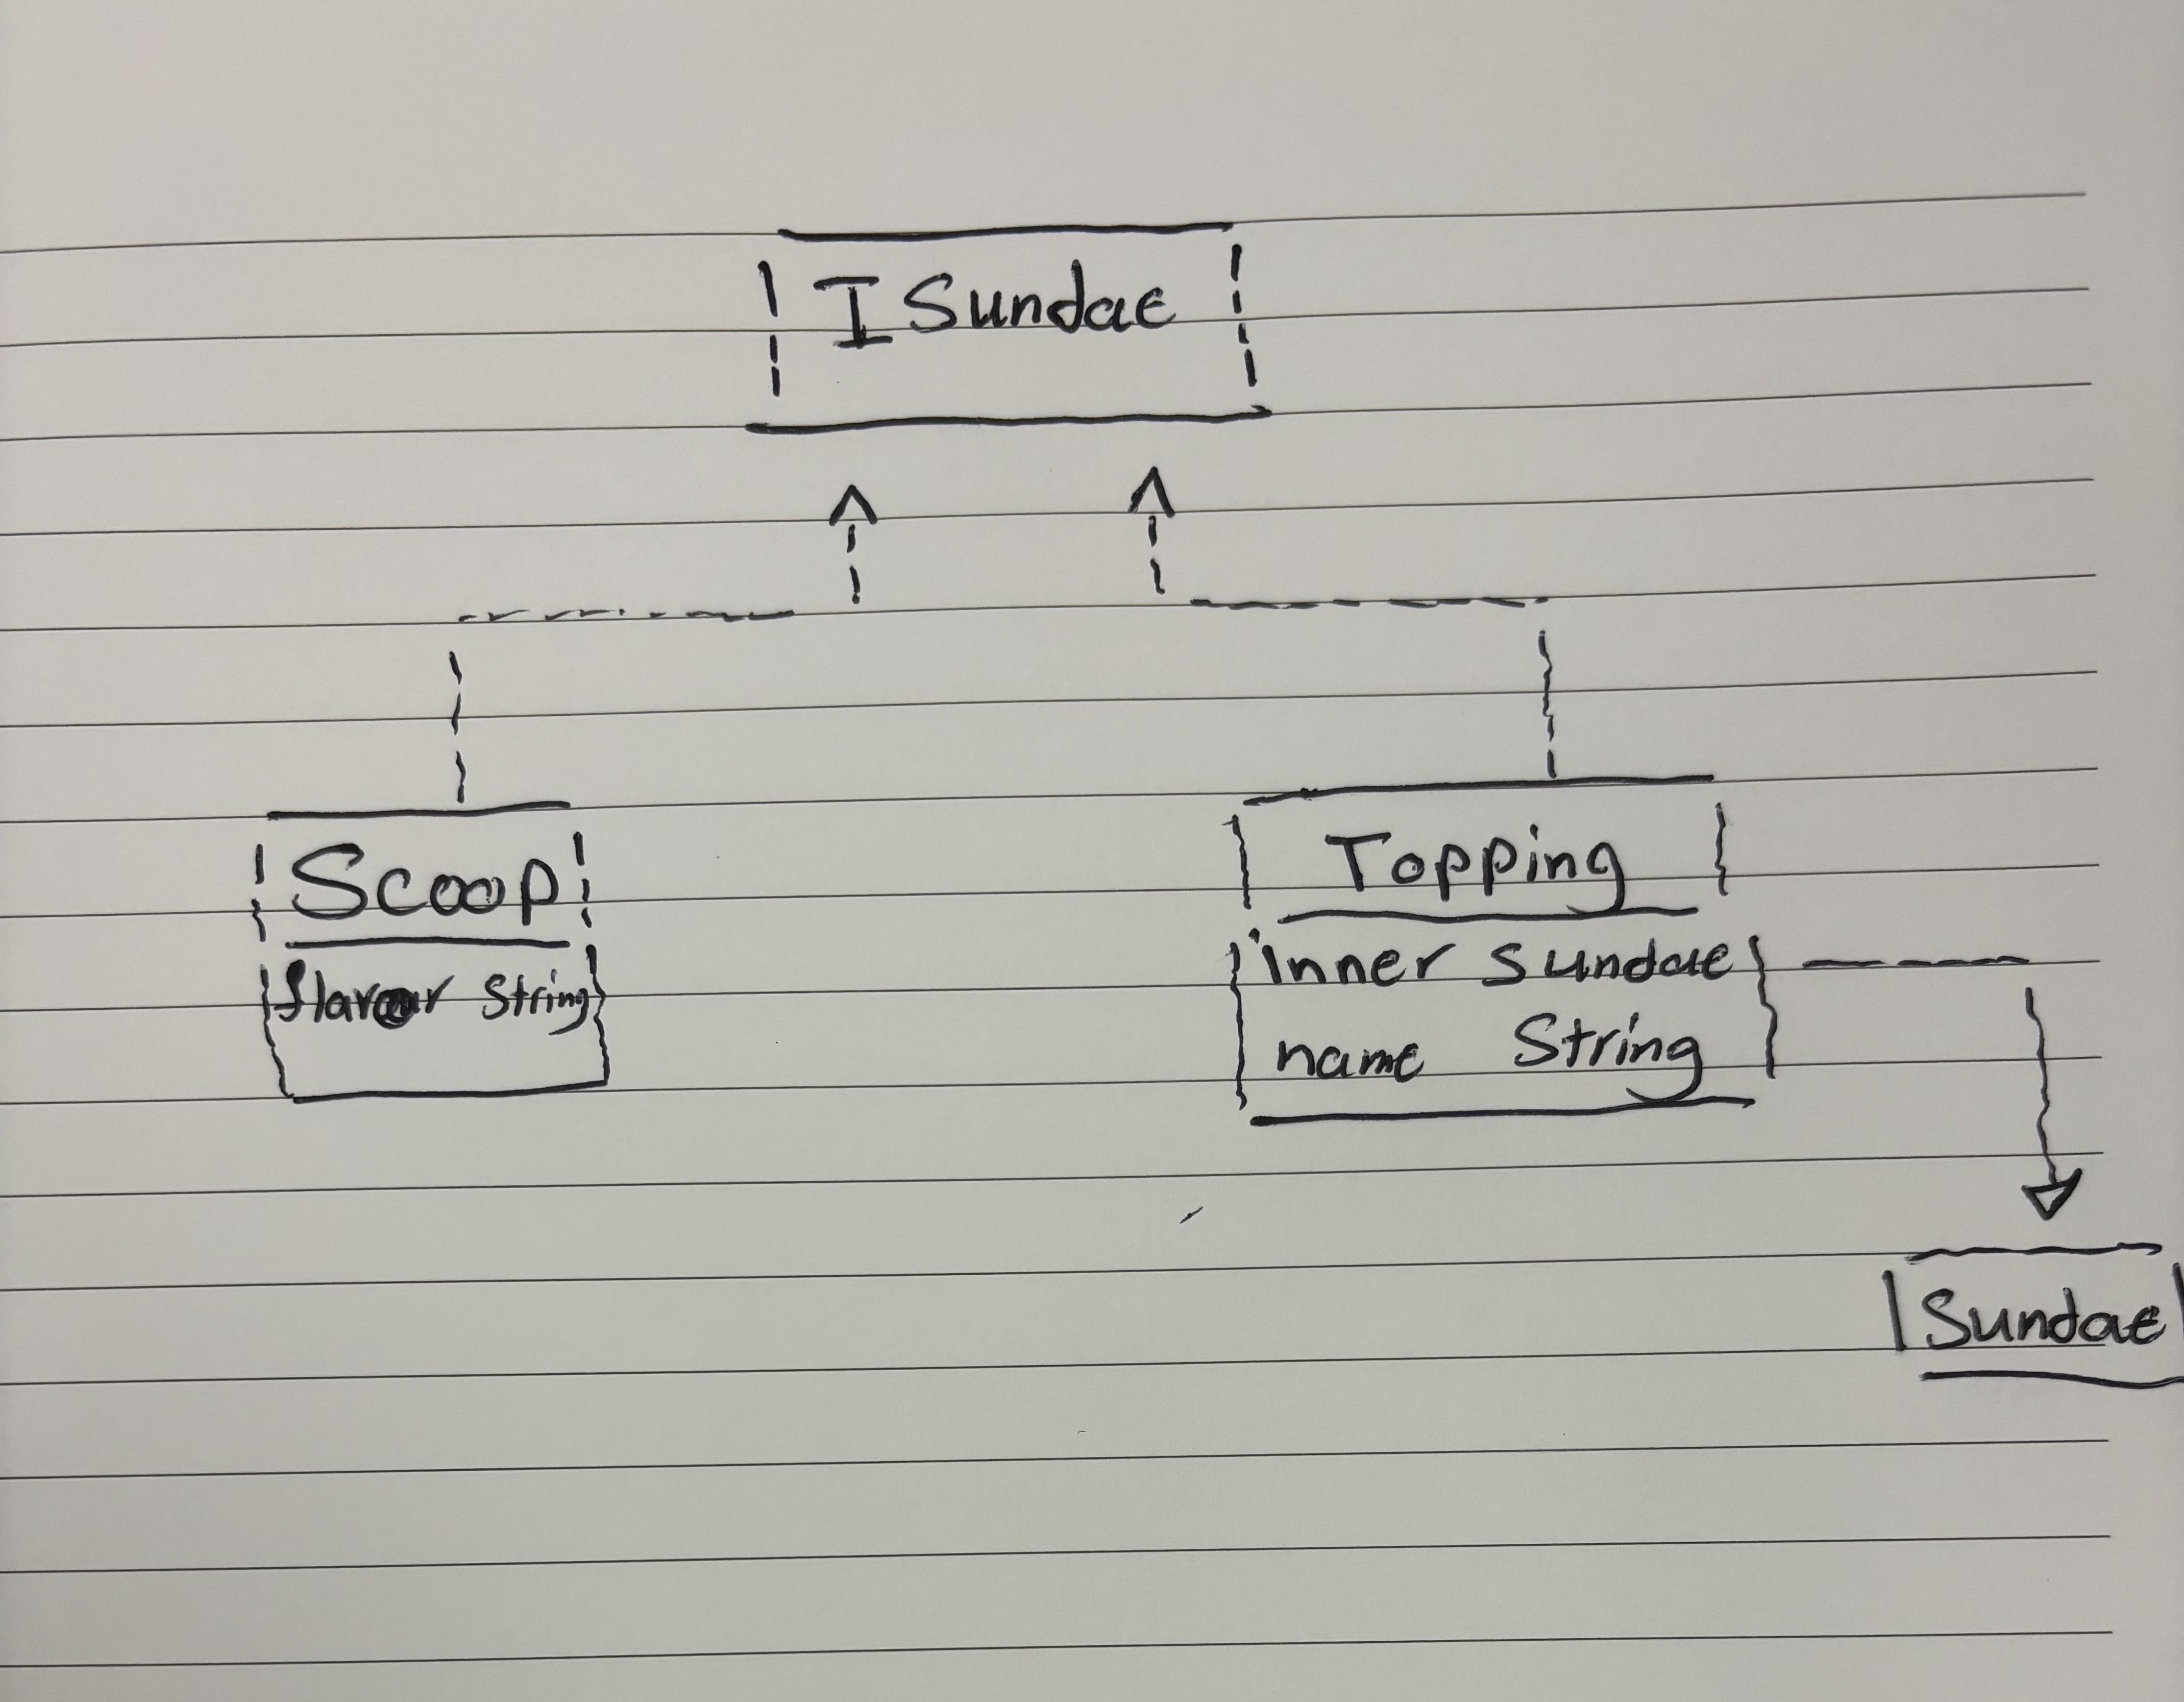 I Sundae
Scoop
flavour String
Topping
inner Sundae
name String
Sundae